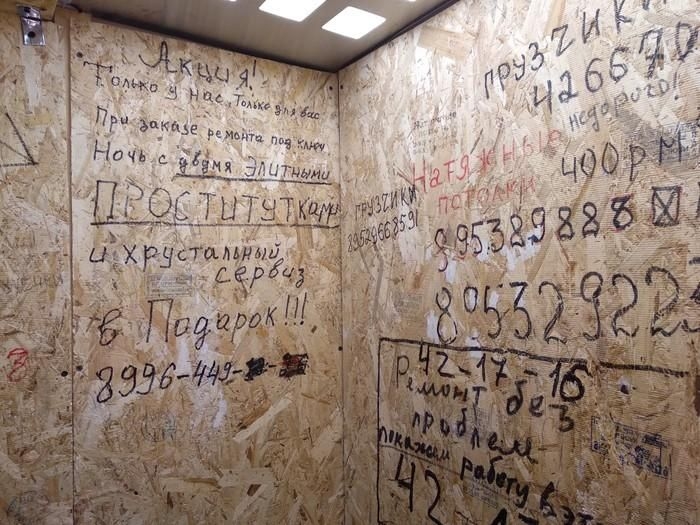 Акция!
Только у нас. Только для вас
При заказе ремонта под ключ
Ночь с двумя Элитными
ПРОСТИТУТКами
и хрустальный
сервиз
в Подарок!!!
8996-449-
ГРУЗЧИКИ
89529668591
ГРУЗЧИКИ
426670
недорого!
Натяжные
потолки
400р м
895389888
8 953 2922
42-17-16
ремонт без
проблем
покажем работу в эт
42